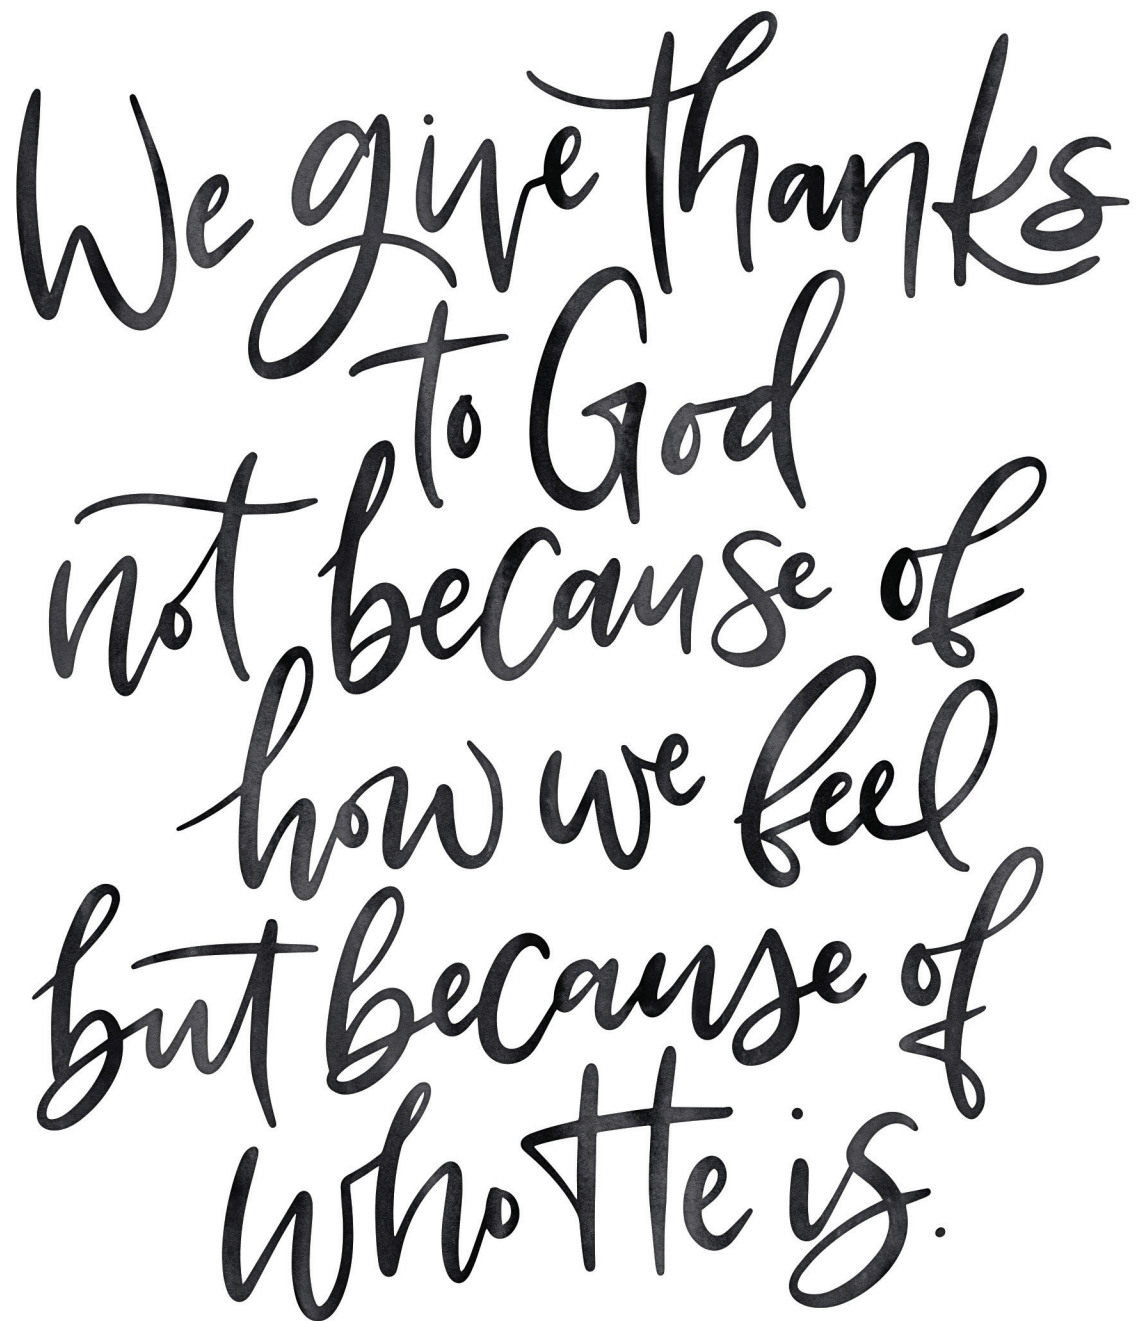 We give thanks
to God
not because of
how we feel
but because of
who He is.